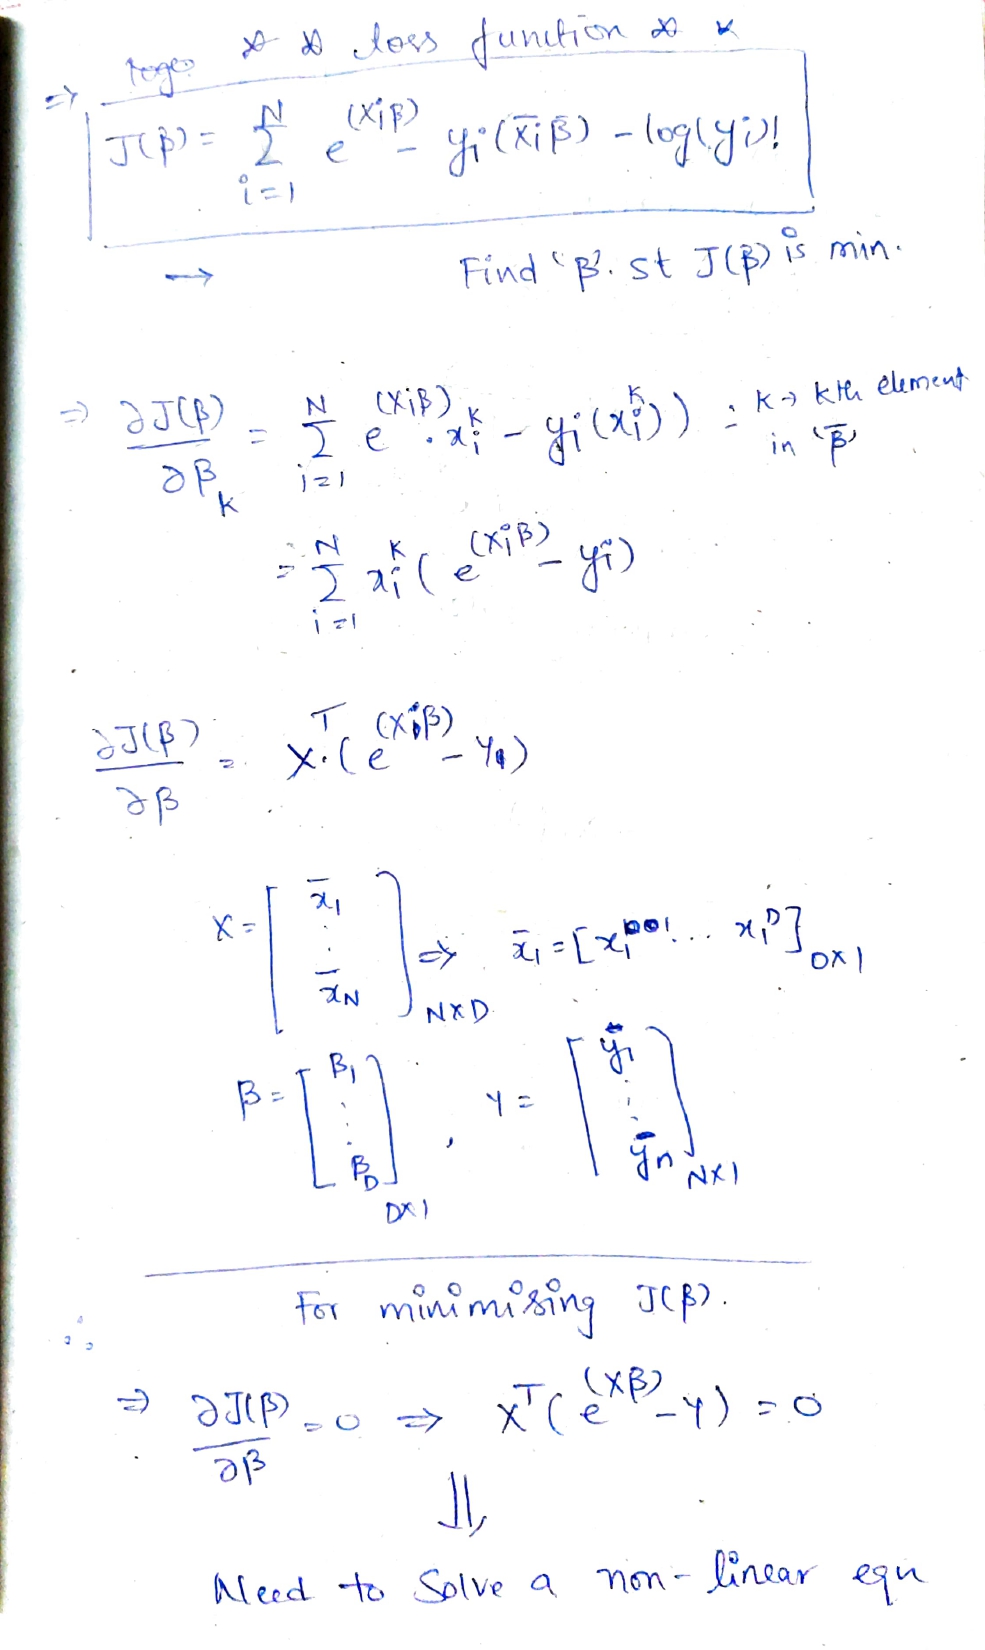 loss function
⇒ J(β) = Σ_{i=1}^{N} e^{(xiβ)} - yi(x̄iβ) - log(yi)!
→ Find 'β'. st J(β) is min.
⇒ ∂J(β)/∂β_k = Σ_{i=1}^{N} e^{(xiβ)} . x_i^k - yi(x_i^k)) : k → kth element in 'β̄'
= Σ_{i=1}^{N} x_i^k (e^{(xiβ)} - yi)
∂J(β)/∂β = X^T.(e^{(Xβ)} - Y)
X = [x̄1 ⋮ x̄N]_{N×D} ⇒ x̄1 = [x_1^{01} ... x_1^D]_{D×1}
β = [β1 ⋮ βD]_{D×1} , Y = [ȳ1 ⋮ ȳn]_{N×1}
∴ For minimising J(β).
⇒ ∂J(β)/∂β = 0 ⇒ X^T(e^{(Xβ)} - Y) = 0
⇓
Need to solve a non-linear equn